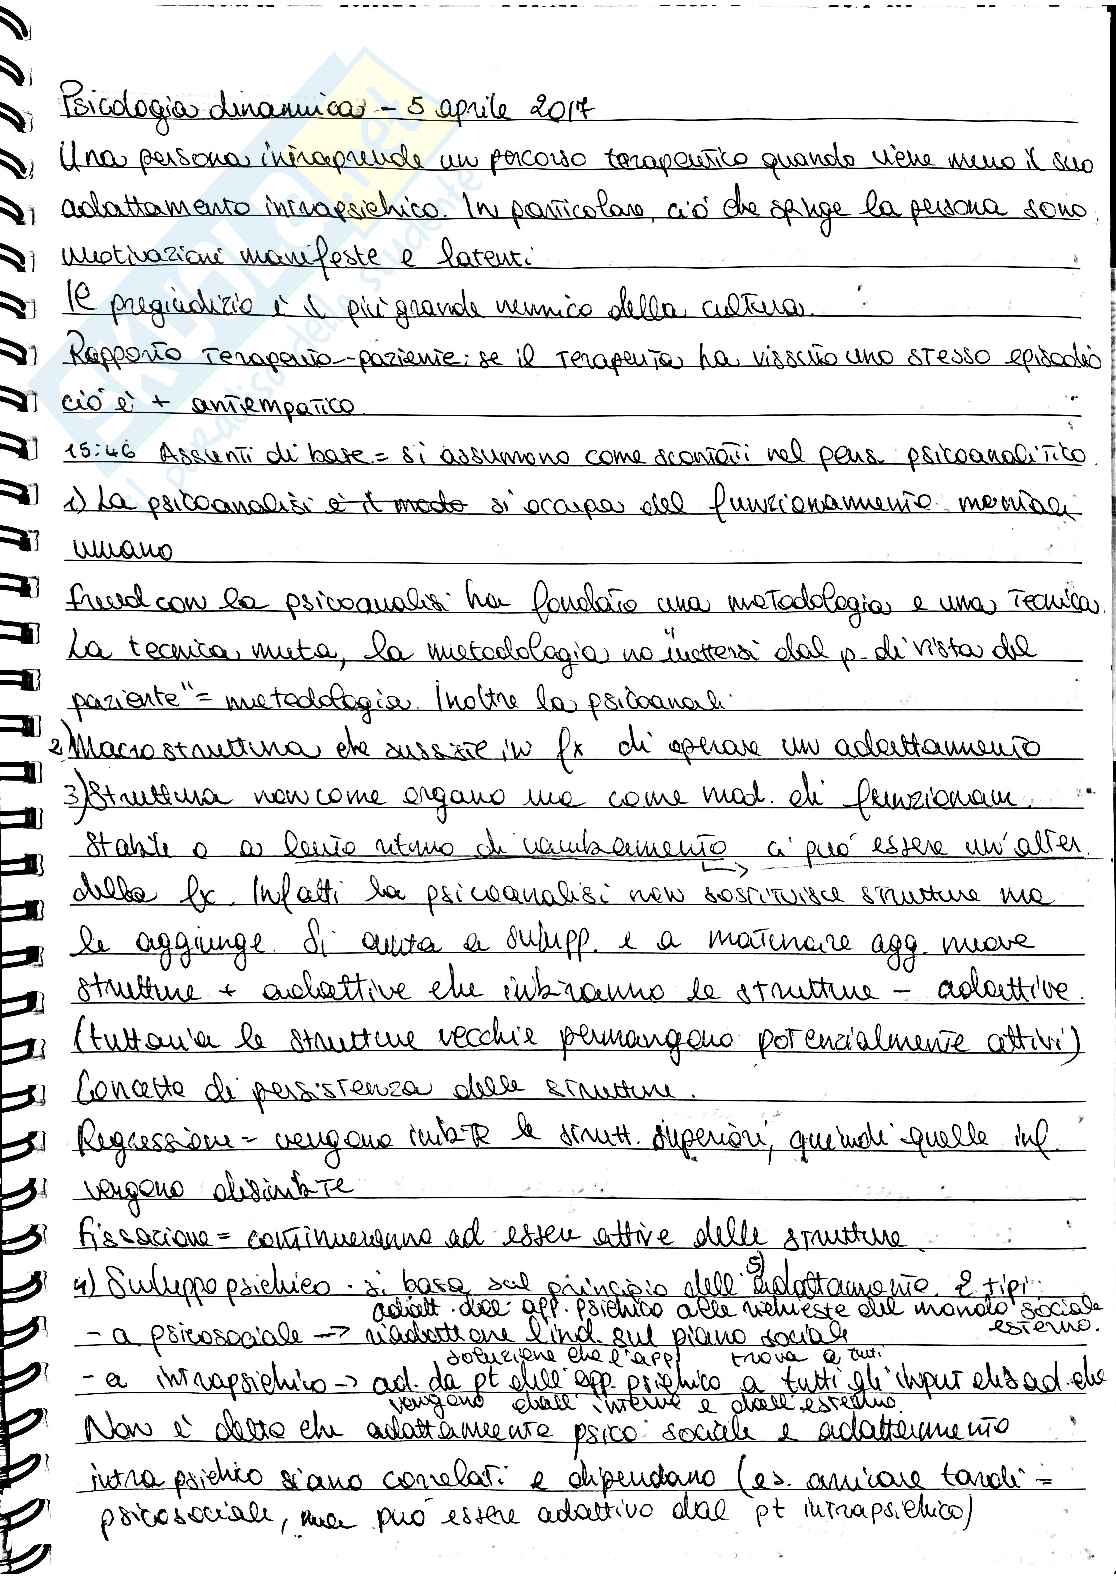 Psicologia dinamica - 5 aprile 2017
Una persona intraprende un percorso terapeutico quando viene meno il suo
adattamento intrapsichico. In particolare, ciò che spinge la persona sono
motivazioni manifeste e latenti
Il pregiudizio è il più grande nemico della cultura.
Rapporto terapeuta-paziente: se il terapeuta ha vissuto uno stesso episodio
ciò è + antiempatico
15:46 Assunti di base = si assumono come scontati nel pens. psicoanalitico
1) La psicoanalisi è il modo si occupa del funzionamento mentale
umano
Freud con la psicoanalisi ha fondato una metodologia e una tecnica.
La tecnica muta, la metodologia no "mettersi dal p. di vista del
paziente" = metodologia. Inoltre la psicoanali
2) Macrostruttura che sussiste in fx di operare un adattamento
3) Struttura non come organo ma come mod. di funzionam.
stabile o a lento ritmo di cambiamento ci può essere un'alter.
della fx. Infatti la psicoanalisi non sostituisce strutture ma
le aggiunge. Si aiuta a svilupp. e a maturare agg. nuove
strutture + adattive che inibiranno le strutture - adattive.
(tuttavia le strutture vecchie permangono potenzialmente attivi)
Concetto di persistenza delle strutture.
Regressione = vengono inibite le strutt. superiori, quindi quelle inf.
vengono disinibite
Fissazione = continueranno ad essere attive delle strutture
4) Sviluppo psichico. si basa sul principio dell' 5) adattamento. 2 tipi:
adatt. dell'app. psichico alle richieste del mondo sociale
esterno.
- a psicosociale → riadattare l'ind. sul piano sociale
soluzione che l'app trova a tutti
- a intrapsichico → ad. da pt dell'app. psichico a tutti gli input disad. che
vengono dall'interno e dall'esterno.
Non è detto che adattamento psico sociale e adattamento
intra psichico siano correlati e dipendano (es. arrivare tardi =
psicosociale, ma può essere adattivo dal pt intrapsichico)